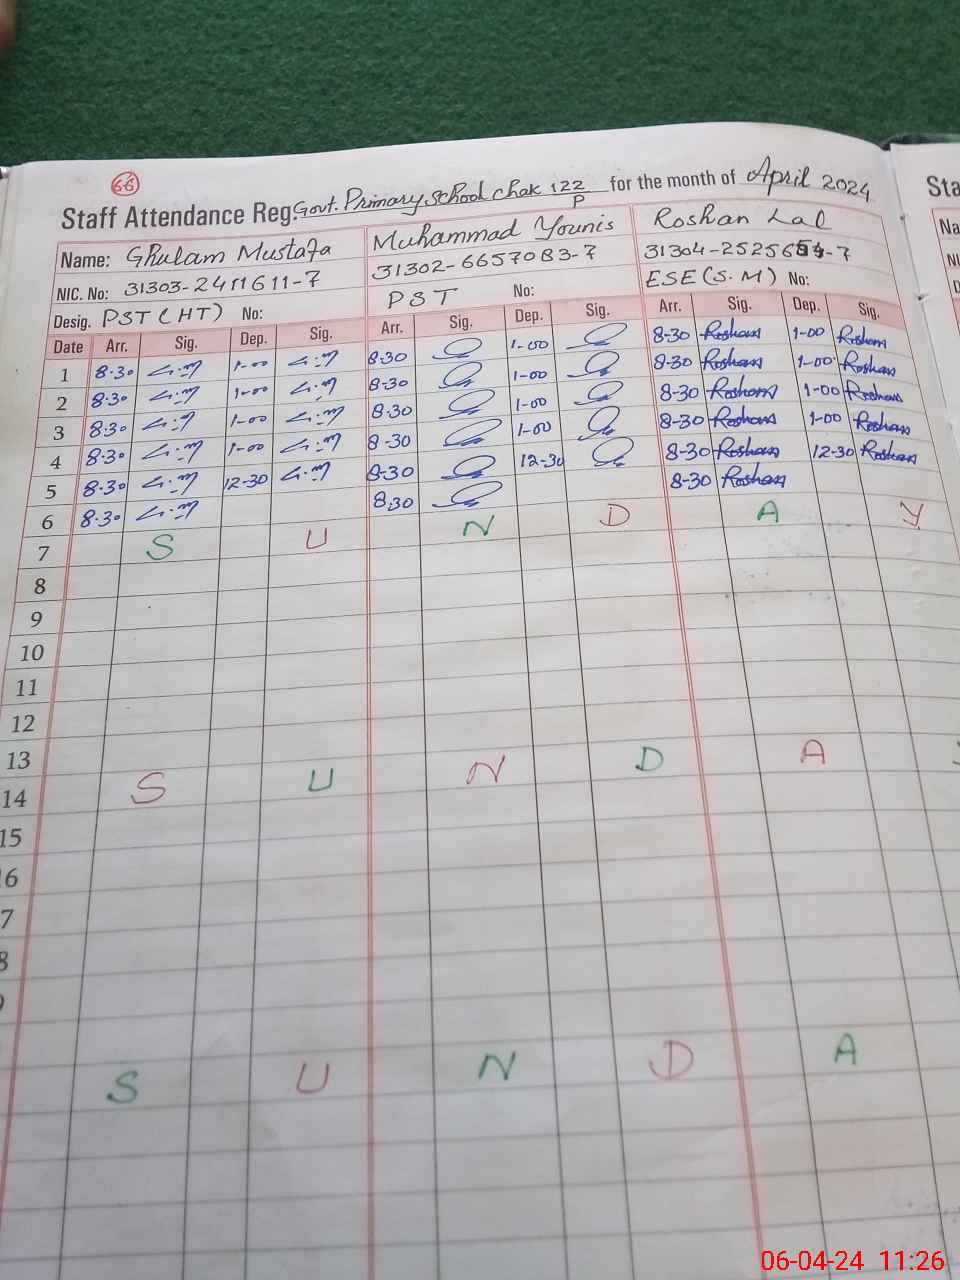 66
Staff Attendance Reg. Govt. Primary School Chak 122/P for the month of April 2024
Name: Ghulam Mustafa Muhammad Younis Roshan Lal
NIC. No: 31303-2411611-7 31302-6657083-7 31304-2525654-7
Desig. PST (HT) No: PST No: ESE (S.M) No:
Date Arr. Sig. Dep. Sig. Arr. Sig. Dep. Sig. Arr. Sig. Dep. Sig.
1 8-30 1-00 8-30 1-00 8-30 Roshan 1-00 Roshan
2 8-30 1-00 8-30 1-00 8-30 Roshan 1-00 Roshan
3 8-30 1-00 8-30 1-00 8-30 Roshan 1-00 Roshan
4 8-30 1-00 8-30 1-00 8-30 Roshan 1-00 Roshan
5 8-30 12-30 8-30 12-30 8-30 Roshan 12-30 Roshan
6 8-30 8-30 8-30 Roshan
7 S U N D A Y
8
9
10
11
12
13
14 S U N D A
15
6
7
8
S U N D A
Sta
Na
NI
D
06-04-24 11:26